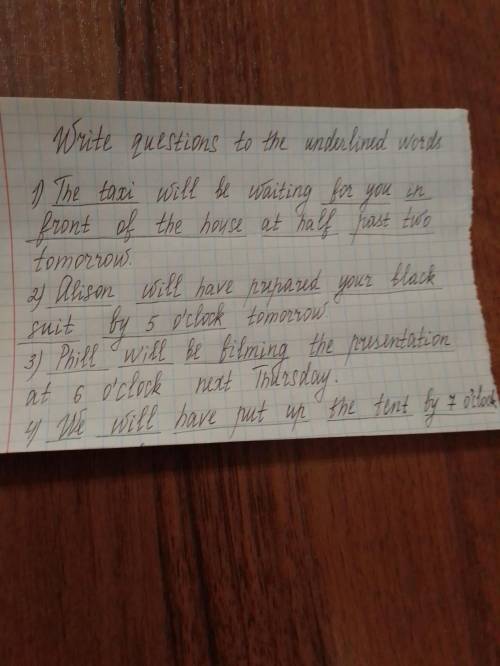 Write questions to the underlined words
1) The taxi will be waiting for you in
front of the house at half past two
tomorrow.
2) Alison will have prepared your black
suit by 5 o'clock tomorrow.
3) Phill will be filming the presentation
at 6 o'clock next Thursday.
4) We will have put up the tent by 7 o'clock